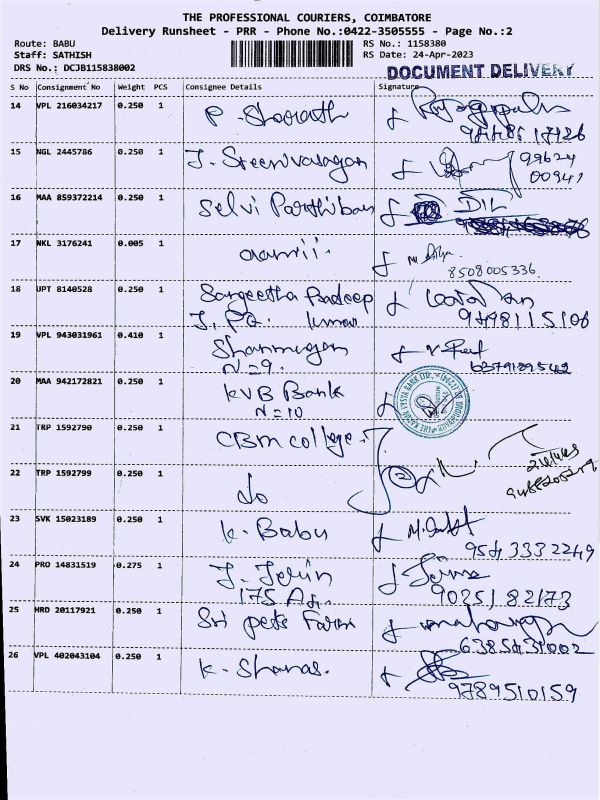 THE PROFESSIONAL COURIERS, COIMBATORE
Delivery Runsheet - PRR - Phone No.:0422-3505555 - Page No.:2
Route: BABU
RS No.: 1158380
Staff: SATHISH
RS Date: 24-Apr-2023
DRS No.: DCJB115838002
DOCUMENT DELIVERY
S No Consignment No Weight PCS Consignee Details Signature
14 VPL 216034217 0.250 1 P. Sharath
15 NGL 2445786 0.250 1 J. Sreenivasagan 99624
00941
16 MAA 859372214 0.250 1 Selvi Parthiban DIL
17 NKL 3176241 0.005 1
8508005336
18 UPT 8140528 0.250 1 Sangeetha Pradeep
kumar 9498115106
19 VPL 943031961 0.410 1 Shanmugan
N=9.
20 MAA 942172821 0.250 1 KVB Bank
N=10
21 TRP 1592790 0.250 1 CBM college
22 TRP 1592799 0.250 1 do 2
23 SVK 15023189 0.250 1 K. Babu
9543332249
24 PRO 14831519 0.275 1 J. Jelin
9025182173
25 HRD 20117921 0.250 1 Sri pets Farm
6385431002
26 VPL 402043104 0.250 1 K. Shanas.
9789510159